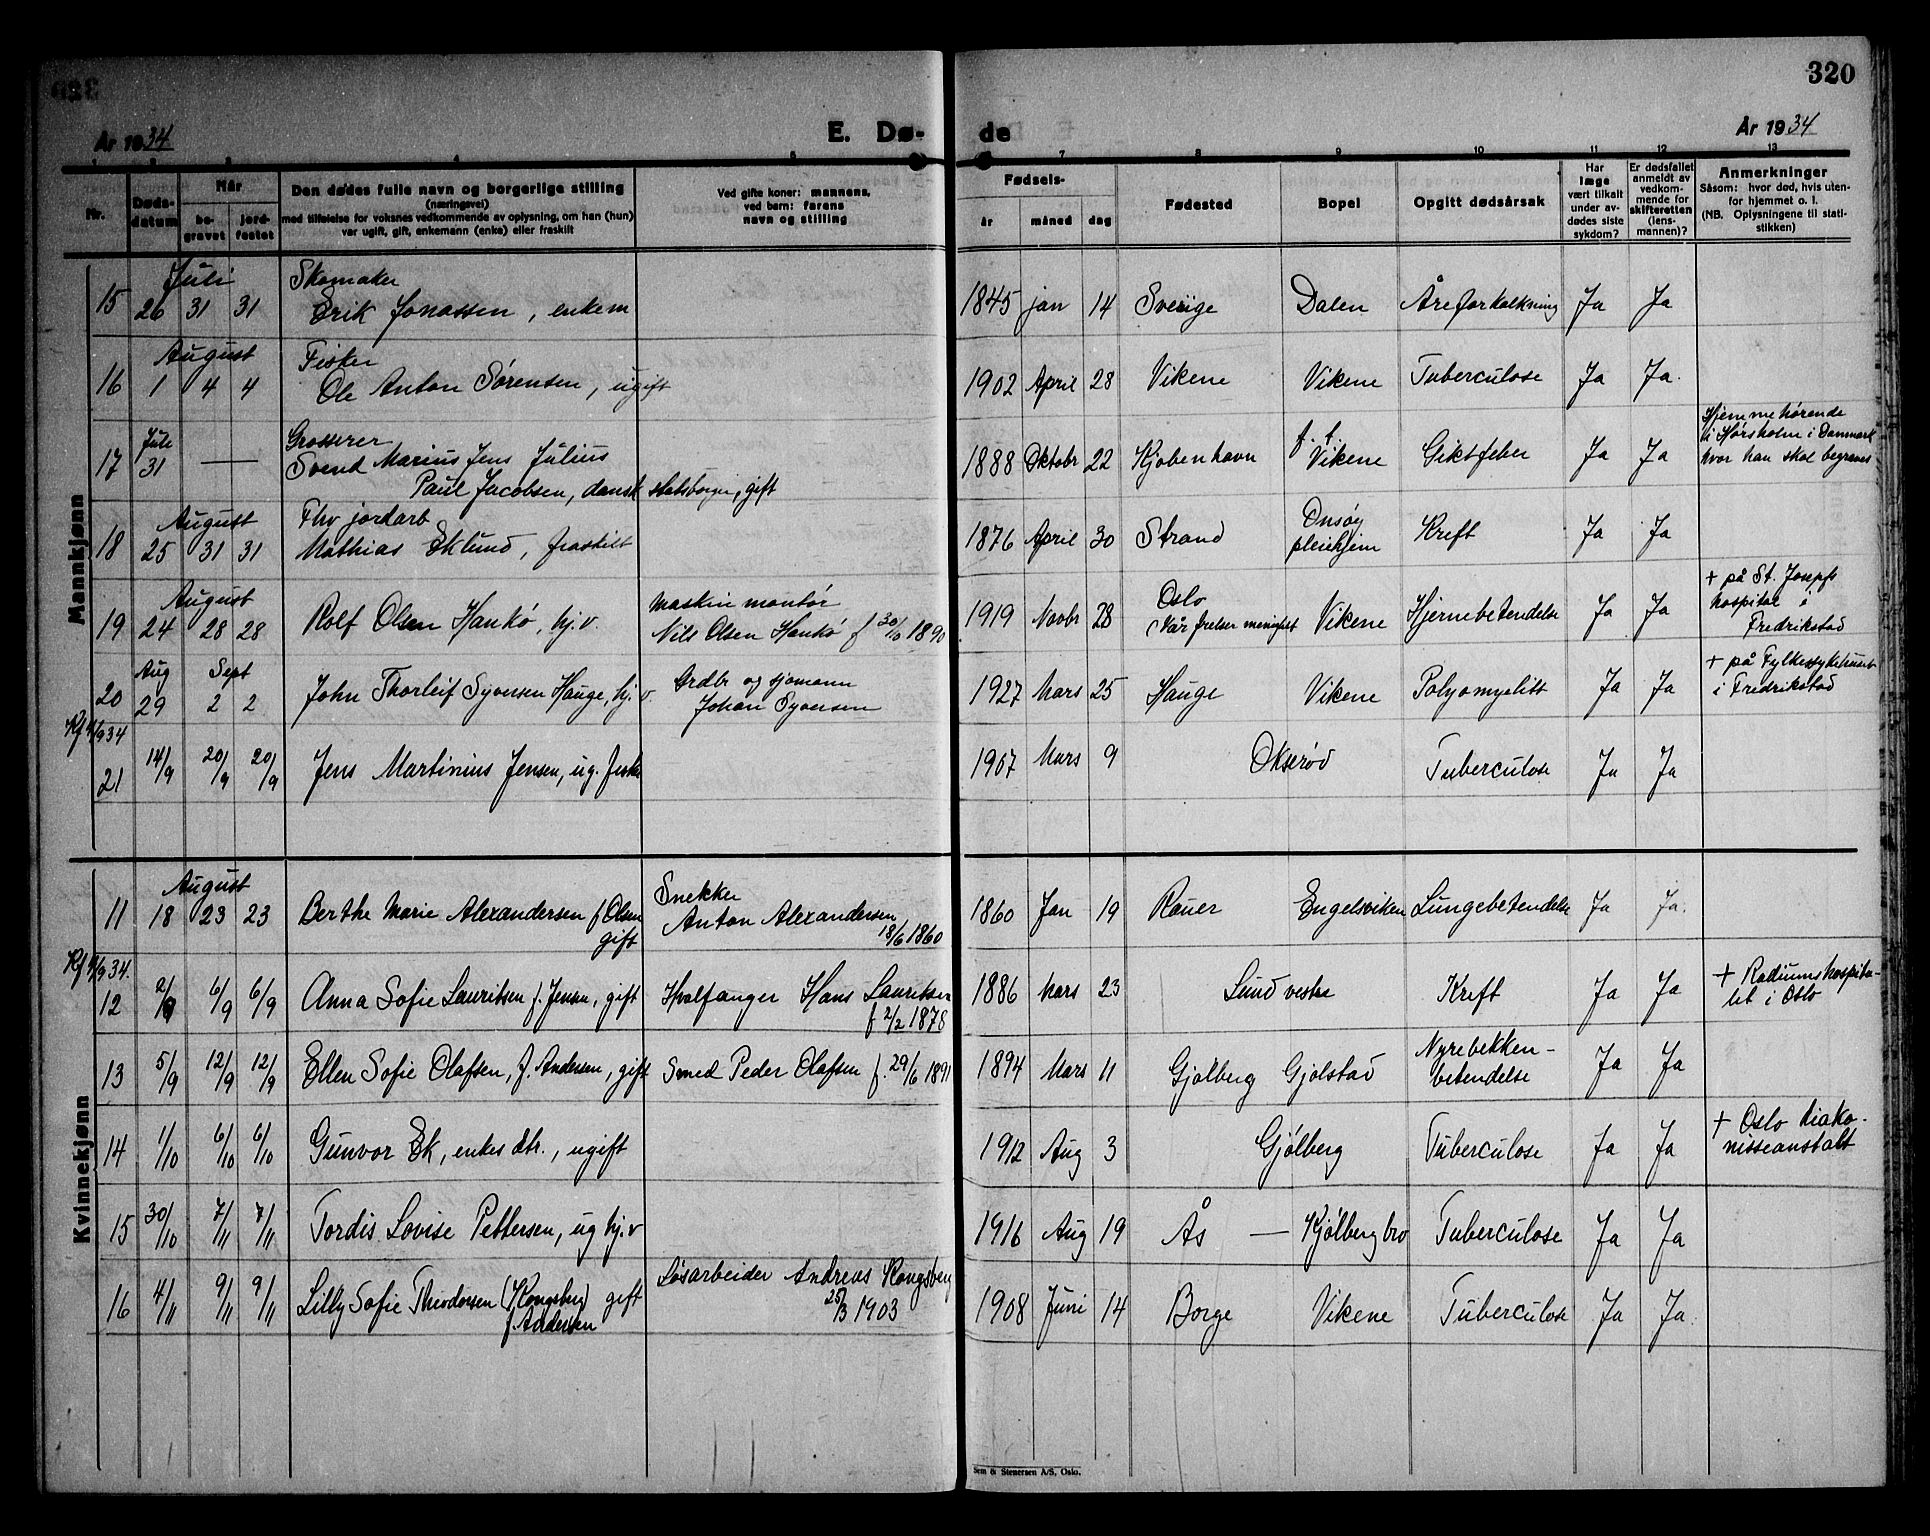 320
År 1934
E. Dø-
de
År 1934
1 2 3 4 5 7 8 9 10 11 12 13
Nr.
Døds-
datum
Når
be-
gravet
jord-
festet
Den dødes fulle navn og borgerlige stilling
(næringsvei)
med tilføielse for voksnes vedkommende av oplysning, om han (hun)
var ugift, gift, enkemann (enke) eller fraskilt
Ved gifte koner: mannens,
ved barn: farens
navn og stilling
Fødsels-
år måned dag
Fødested
Bopel
Opgitt dødsårsak
Har
læge
vært tilkalt
under av-
dødes siste
sykdom?
Er dødsfallet
anmeldt av
vedkom-
mende for
skifteretten
(lens-
mannen)?
Anmerkninger
Såsom: hvor død, hvis uten-
for hjemmet o. l.
(NB. Oplysningene til stati-
stikken)
Mannkjønn
Juli Skomaker
15 26 31 31 Erik Jonassen, enkem 1845 jan 14 Sverige Dalen Åreforkalkning Ja Ja
August Fisker
16 1 4 4 Ole Anton Sørensen, ugift 1902 April 28 Vikene Vikene Tuberculose Ja Ja.
Juli Grosserer f. t. Hjemmehørende
17 31 — Svend Marius Jens Julius 1888 Oktobr 22 Kjøbenhavn Vikene Giktfeber Ja Ja i Hørsholm i Danmark
Paul Jacobsen, dansk statsborger, gift hvor han skal begraves
August Fhv jordarb Onsøy
18 25 31 31 Mathias Eklund, fraskilt 1876 April 30 Strand pleiehjem Kreft Ja Ja
August maskin montør Oslo + på St. Josephs
19 24 28 28 Rolf Olsen Hankø, hj.v. Nils Olsen Hankø f 30/10 1890 1919 Novbr 28 (Vår frelser menighet Vikene Hjernebetendelse Ja Ja hospital i
Fredrikstad
Aug Sept Ardbr og sjømann + på Fylkessykehuset
20 29 2 2 John Thorleif Syversen Hauge, hj. v. Johan Syversen 1927 Mars 25 Hauge Vikene Polyomyelitt Ja Ja i Fredrikstad
21 14/9 20/9 20/9 Jens Martinius Jensen, ug. fisker 1907 Mars 9 Okserød Tuberculose Ja Ja
Kvinnekjønn
August Snekker
11 18 23 23 Berthe Marie Alexandersen f Olsen Anton Alexandersen 1860 Jan 19 Rauer Engelsviken Lungebetendelse Ja Ja.
gift 18/6 1860
12 2/9 6/9 6/9 Anna Sofie Lauritsen f. Jensen, gift Hvalfanger Hans Lauritsen 1886 Mars 23 Lund vestre Kreft Ja Ja + Radiumshospita-
f 2/2 1878 let i Oslo
13 5/9 12/9 12/9 Ellen Sofie Olafsen, f. Andersen, gift Smed Peder Olafsen f. 29/6 1891 1894 Mars 11 Gjølberg Gjølstad Nyrebekken-
betendelse Ja Ja
14 1/10 6/10 6/10 Gunvor Ek, enkes dtr., ugift 1912 Aug 3 Gjølberg Tuberculose Ja Ja + Oslo diako-
nisseanstalt
15 30/10 7/11 7/11 Tordis Lovise Pettersen, ug hj.v 1916 Aug 19 Ås — Kjølberg bro Tuberculose Ja Ja
16 4/11 9/11 9/11 Lilly Sofie Theodorsen (Kongsberg) gift Løsarbeider Andreas Kongsberg 1908 Juni 14 Borge Vikene Tuberculose Ja Ja.
f. Andersen 25/3 1903
Sem & Stenersen A/S, Oslo.